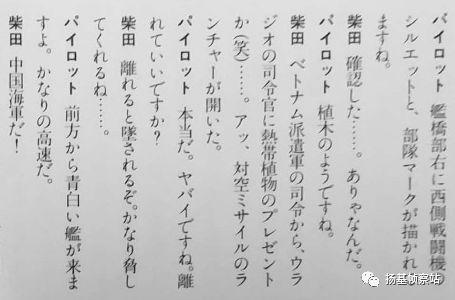 パイロット 艦橋部右に西側戦闘機の
シルエットと、部隊マークが描かれ
ますね。
柴田 確認した……。ありゃなんだ。
パイロット 植木のようですね。
柴田 ベトナム派遣軍の司令から、ウラ
ジオの司令官に熱帯植物のプレゼント
か(笑)……。アッ、対空ミサイルのラ
ンチャーが開いた。
パイロット 本当だ。ヤバイですね。離
れていいですか?
柴田 離れると墜されるぞ。かなり脅し
てくれるね……。
パイロット 前方から青白い艦が来ま
すよ。かなりの高速だ。
柴田 中国海軍だ!
扬基侦察站